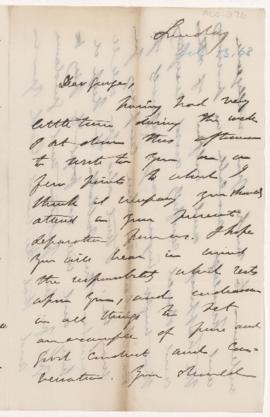 Sunday
Feb 13. 68
Dear George,
having had very
little time during the week
I sit down this afternoon
to write to you on a
few points to which I
think it necessary you should
attend in your present
separation from us. I hope
you will bear in mind
the responsibility which rests
upon you, and endeavour
in all things to set
an example of pure and
good conduct and con-
versation. You should